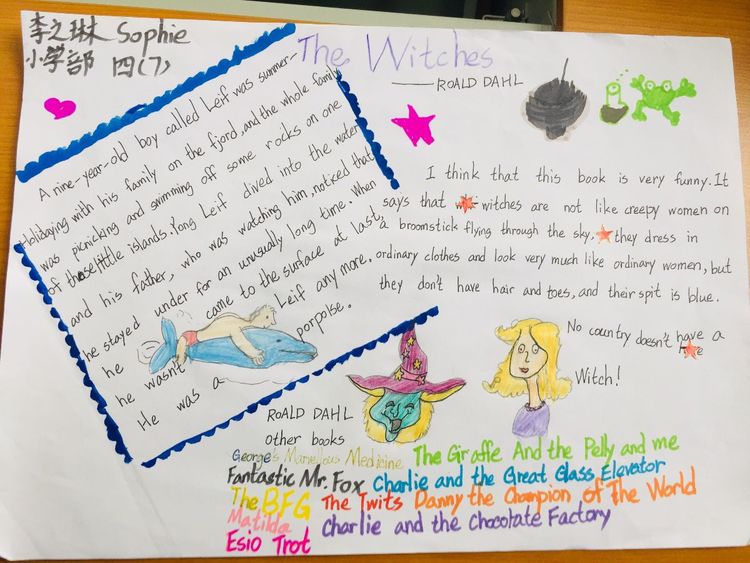 李之琳 Sophie
小学部 四(7)
The Witches
——ROALD DAHL
A nine-year-old boy called Leif was summer-
Holidaying with his family on the fjord, and the whole family
was picnicking and swimming off some rocks on one
of those little islands. Yong Leif dived into the water
and his father, who was watching him, noticed that
he stayed under for an unusually long time. When
he came to the surface at last,
he wasn't Leif any more.
He was a porpoise.
I think that this book is very funny. It
says that witches are not like creepy women on
a broomstick flying through the sky, they dress in
ordinary clothes and look very much like ordinary women, but
they don't have hair and toes, and their spit is blue.
No country doesn't have a
Witch!
ROALD DAHL
other books
George's Marvellous Medicine The Giraffe And the Pelly and me
Fantastic Mr. Fox Charlie and the Great Glass Elevator
The BFG The Twits Danny the Champion of The World
Matilda Charlie and the Chocolate Factory
Esio Trot